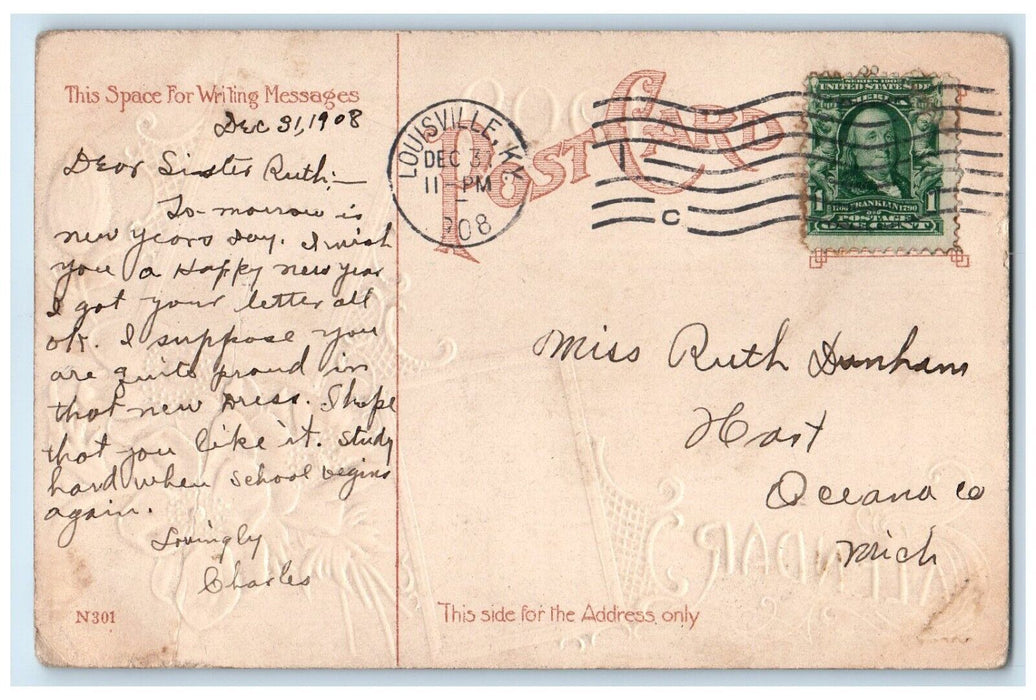 This Space For Writing Messages
Dec 31, 1908
Dear Sister Ruth:—
To-morrow is
new years day. I wish
you a Happy new year
I got your letter all
ok. I suppose you
are quite proud in
that new dress. I hope
that you like it. Study
hard when School begins
again.
Lovingly
Charles
N301
POST CARD
LOUISVILLE, KY.
DEC 31
11 - PM
1908
1
C
SERIES 1902
UNITED STATES OF
AMERICA
1706 FRANKLIN 1790
1 POSTAGE 1
ONE CENT
Miss Ruth Dunham
Hart
Oceana Co
Mich
CALENDAR
This side for the Address only